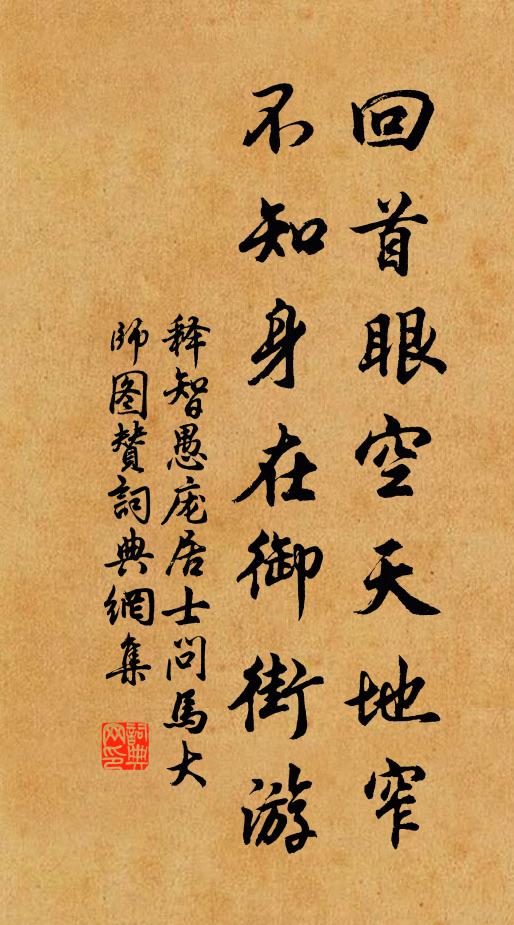 回首眼空天地窄
不知身在御街游
释智愚庞居士问馬大
师图賛詞典網集
詞典網印